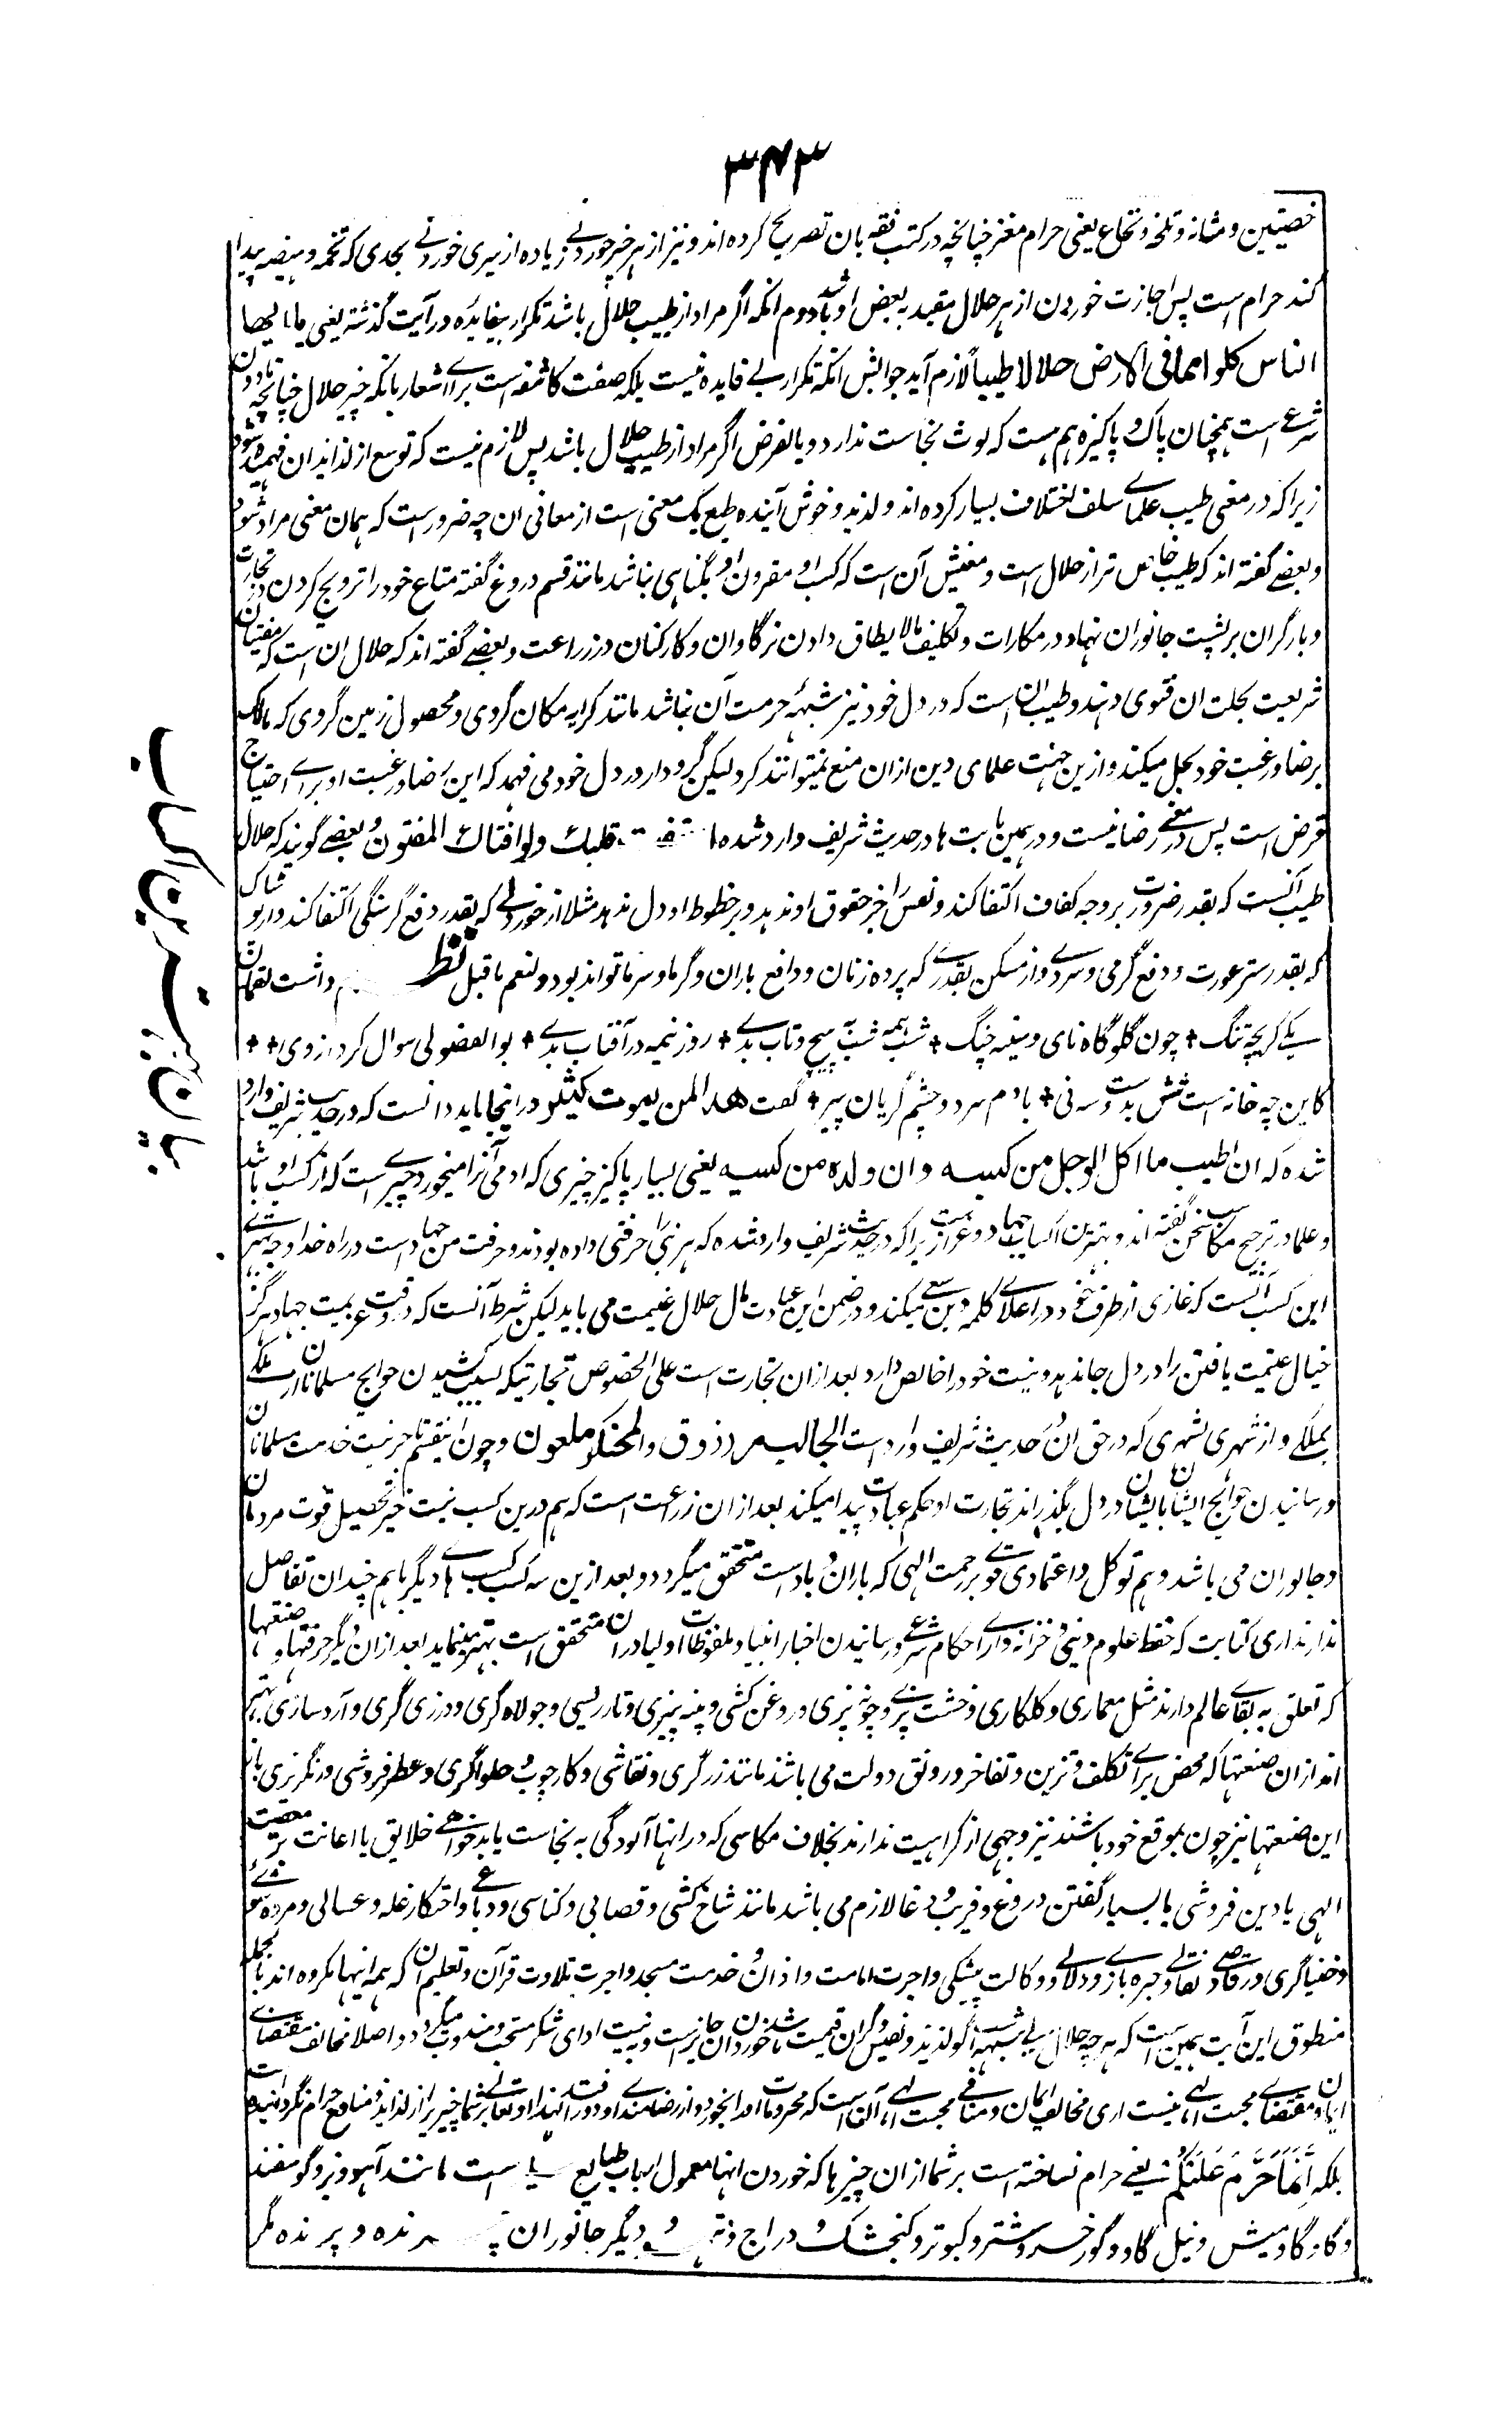 ۳۴۳
خصیتین و مثانه و تلخه و نخاع یعنی حرام مغز چنانچه در کتب فقه بآن تصریح کرده اند و نیز از هر چیز خوردنی زیاده از سیری خوردنی بحدی که تخمه و هیضه پیدا
کند حرام است پس اجازت خوردن از هر حلال مقید به بعض او باشد دوم آنکه اگر مراد از طیب حلال باشد تکرار بیفایده در آیت گذشته یعنی یا ایها
الناس کلوا مما فی الارض حلالا طیبا لازم آید جوابش آنکه تکرار بے فایده نیست بلکه صفت کاشفه است براے اشعار بانکه چیز حلال چنانچه ماذون
شرع است همچنان پاک و پاکیزه هم هست که لوث نجاست ندارد و بالفرض اگر مراد از طیب حلال باشد پس لازم نیست که توسع از لذایذ ان فهمیده شود
زیراکه در معنی طیب علماے سلف اختلاف بسیار کرده اند و لذیذ و خوش آینده طبع یک معنی است از معانی ان چه ضرور است که همان معنی مراد شود
و بعضے گفته اند که طیب خاص تر از حلال است و معنیش آن است که کسب او مقرون او بگناهی نباشد مانند قسم دروغ گفته متاع خود را ترویج کردن در تجارت
و بار گران بر پشت جانوران نهاد در مکارات و تکلیف مالا یطاق دادن نرگاوان و کارکنان در زراعت و بعضے گفته اند که حلال ان است که مفتیان
شریعت بحلت ان فتوی دهند و طیب ان است که در دل خود نیز شبهه حرمت آن نباشد مانند کرایه مکان گروی و محصول زمین گروی که مالک
برضا و رغبت خود بحل میکند و ازین جهت علمای دین ازان منع نمیتوانند کرد لیکن گرودار در دل خود می فهمد که این رضا و رغبت او براے احتیاج
قرض است پس در معنے رضا نیست و در همین بابت ها در حدیث شریف وارد شده قلبک ولو افتاک المفتون و بعضے گویند که حلال
طیب آنست که بقدر ضرورت بر وجه کفاف اکتفا کند و نفس را جز حقوق او ندهد و بر حظوظ او دل ندهد مثلا از خوردنی که بقدر دفع گرسنگی اکتفا کند و از پوشاک
که بقدر ستر عورت و دفع گرمی و سردے و از مسکن بقدرے که پرده زنان و دافع باران و گرما و سرما تواند بود و لنعم ما قیل نظم داشت لقمان
یکے کریچه تنگ + چون گلوگاه نای و سینه چنگ + شب همه شب به پیچ و تاب بدے + روز نیمه در آفتاب بدے + بوالفضولی سوال کرد از وی ++
کاین چه خانه است شش بدست و سه نی + با دم سرد و چشم گریان پیر + گفت هذا لمن یموت کثیر در اینجا باید دانست که در حدیث شریف وارد
شده که ان اطیب ما اکل الرجل من کسبه و ان ولده من کسبه یعنی بسیار پاکیز چیزی که ادمی آنرا میخورد چیزے است که از کسب او باشد
و علما در ترجیح مکاسب سخن گفته اند و بهترین اکساب جهاد و غزا است زیراکه در حدیث شریف وارد شده که هر نبی را حرفتی داده بودند و حرفت من جهاد است در راه خدا و وجه بهترے
این کسب آنست که غازی از طرف خود در اعلاے کلمه دین سعی میکند و در ضمن این عبادت مال حلال غنیمت می یابد لیکن شرط آنست که در وقت عزیمت جهاد هرگز
خیال غنیمت یافتن را در دل جا ندهد و نیت خود را خالص دارد بعد ازان تجارت است علی الخصوص تجارتیکه بسبب کشیدن حوایج مسلمانان از ملکے
بملکے و از شهری بشهری که در حق ان حدیث شریف وارد است الجالب مرزوق والمحتکر ملعون و چون اینقسم تاجر نیت خدمت مسلمانان
و رسانیدن حوایج ایشان بایشان در دل بگذراند تجارت او حکم عبادت پیدا میکند بعد ازان زراعت است که هم درین کسب نیت خیر تحصیل قوت مردمان
و جانوران می باشد و هم توکل و اعتمادی قوی بر رحمت الهی که باران و باد است متحقق میگردد و بعد ازین سه کسب کسب هاے دیگر باهم چندان تفاضل
ندارند اری کتابت که حفظ علوم دینی و خزانه داری احکام شرع و رسانیدن اخبار انبیا و ملفوظات اولیا در ان متحقق است بهتر مینماید بعد ازان دیگر حرفتها و صنعتها
که تعلق به بقاے عالم دارند مثل معماری و گلکاری و خشت پزے و چونه پزی و روغن کشی و پنبه پیزی و تار ریسی و جولاه گری و درزی گری و آرد سازی بهتر
اند ازان صنعتها که محض براے تکلف و تزین و تفاخر و رونق دولت می باشند مانند زرگری و نقاشی و کارچوب و حلواگری و عطر فروشی و رنگریزی باز
این صنعتها نیز چون بموقع خود باشند نیز وجهی از کراهیت ندارند بخلاف مکاسبی که در انها آلودگی به نجاست یا بدخواهے خلایق یا اعانت بر معصیت
الهی یا دین فروشی یا بسیار گفتن دروغ و فریب و دغا لازم می باشد مانند شاخ کشی و قصابی و کناسی و دباغے و احتکار غله و غسالی و مرده شوے
و خنیاگری و رقاصے و نقالے و جره بازے و دلالے و وکالت پیشگی و اجرت امامت و اذان و خدمت مسجد و اجرت تلاوت قرآن و تعلیم ان که همه اینها مکروه اند بالجمله
منطوق این آیت همین است که هر چه حلال بے شبهه است گو لذیذ و نفیس و گران قیمت باشد خوردن ان جایز است و به نیت ادای شکر مستحب و مندوب میگردد و اصلا مخالف مقتضاے
ایمان و مقتضاے محبت الهے نیست اری مخالف ایمان و منافی محبت الهے آن است که محرومات خدا بخورد و از رضامندے او دور افتد لهذا او تعالے بر شما چیزے را از لذایذ و منافع حرام نگردانیده است
بلکه اِنَّمَا حَرَّمَ عَلَیْکُمْ یعنے حرام نساخته است بر شما ازان چیزها که خوردن انها معمول ارباب طبایع است مانند آهو و بز و گوسفند
و گاو گاومیش و نیل گاو و گورخر و شتر و کبوتر و کنجشک و دراج و دیگر جانوران و پرنده مگر
بیان بهترین اکساب